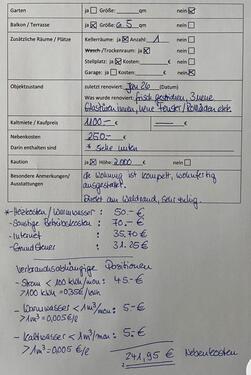 Garten ja☐ Größe: qm nein☒
Balkon / Terrasse ja☒ Größe: ca. 5 qm nein☐
Zusätzliche Räume / Plätze Kellerräume: ja☒ Anzahl: 1 nein☐
Wasch-/Trockenraum: ja☒ nein☐
Stellplatz: ja☒ Kosten: € nein☐
Garage: ja☐ Kosten: € nein☒
Objektzustand zuletzt renoviert: Jan 26 (Datum)
Was wurde renoviert: frisch gestrichen, 3 neue
Glastüren innen, neue Fenster/Rolläden elektr.
Kaltmiete / Kaufpreis 1100.- €
Nebenkosten 250.- €
Darin enthalten sind * siehe unten
Kaution ja☒ Höhe: 2.000 € nein☐
Besondere Anmerkungen/ die Wohnung ist komplett, wohnfertig
Ausstattungen ausgestattet.
Direkt am Waldrand, sehr ruhig.
* - Heizkosten / Warmwasser : 50.- €
- Sonstige Betriebskosten : 70.- €
- Internet : 35,70 €
- Grundsteuer : 31.25 €
Verbrauchsabhängige Positionen
- Strom < 100 kWh/mon: 45.- €
> 100 kWh = 0,35€/kwh
- Warmwasser < 1m³/mon: 5.- €
> 1m³ = 0,005€/l
- Kaltwasser < 1m³/mon: 5.- €
> 1m³ = 0,005 €/l
241,95 € Nebenkosten